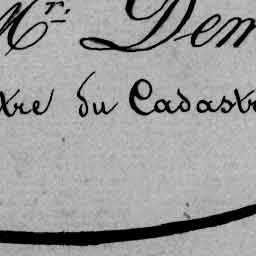 Mr. Dem
tre du Cadastr